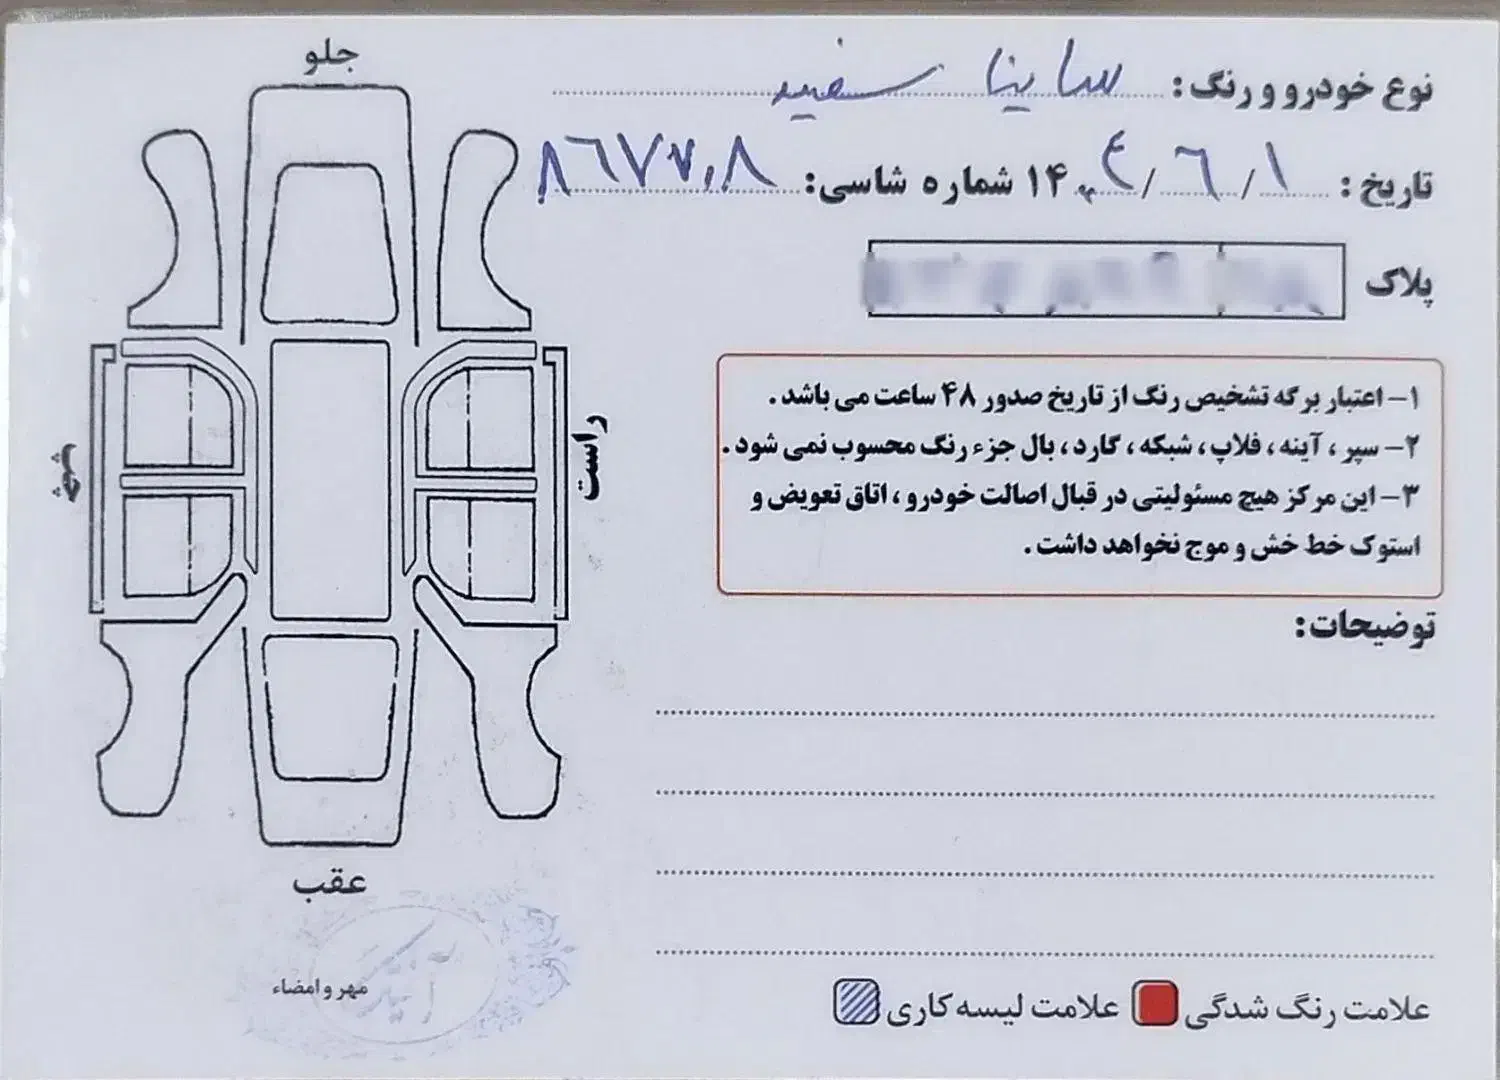 جلو
نوع خودرو و رنگ: ساینا سفید
تاریخ: ۱ / ۶ / ۱۴۰۴ شماره شاسی: ۸۶۷۷۰۸
پلاک
۱- اعتبار برگه تشخیص رنگ از تاریخ صدور ۴۸ ساعت می باشد.
۲- سپر، آینه، فلاپ، شبکه، گارد، بال جزء رنگ محسوب نمی شود.
۳- این مرکز هیچ مسئولیتی در قبال اصالت خودرو، اتاق تعویض و
استوک خط خش و موج نخواهد داشت.
راست
چپ
توضیحات:
عقب
مهر و امضاء
علامت رنگ شدگی
علامت لیسه کاری